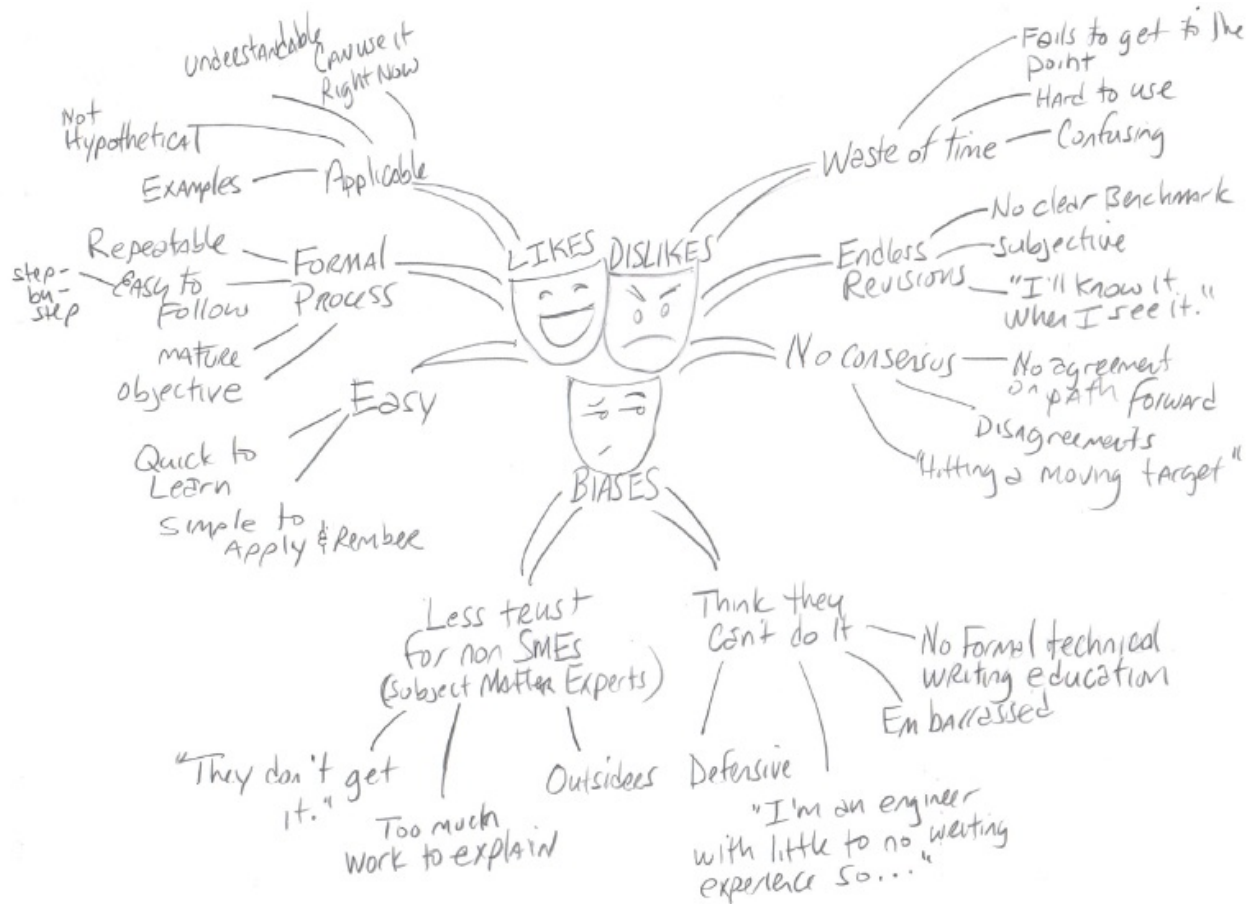 LIKES
Applicable
Understandable
CAN use it
Right Now
Not
Hypothetical
Examples
Formal
Process
Repeatable
Easy to
Follow
step-
by-
step
mature
objective
Easy
Quick to
Learn
Simple to
Apply & Rember
DISLIKES
Waste of time
Fails to get to the
point
Hard to use
Confusing
Endless
Revisions
No clear Benchmark
subjective
"I'll know it
when I see it."
No consensus
No agreement
on path forward
Disagreements
"Hitting a moving target"
BIASES
Less trust
for non SMEs
(Subject Matter Experts)
"They don't get
it."
Too much
work to explain
Outsiders
Think they
can't do it
No Formal technical
writing education
Embarrassed
Defensive
"I'm an engineer
with little to no writing
experience so..."